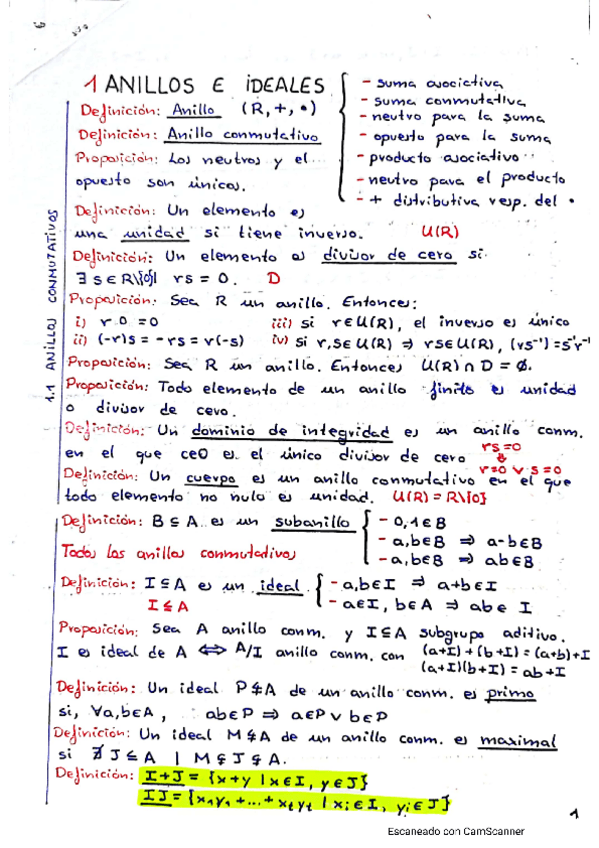 1 ANILLOS E IDEALES
- suma asociativa
- suma conmutativa
- neutro para la suma
- opuesto para la suma
- producto asociativo
- neutro para el producto
- + distributiva resp. del •
1.1 ANILLOS CONMUTATIVOS
Definición: Anillo (R, +, •)
Definición: Anillo conmutativo
Proposición: Los neutros y el
opuesto son únicos.
Definición: Un elemento es
una unidad si tiene inverso. U(R)
Definición: Un elemento es divisor de cero si
∃ s∈R\{0} rs = 0. D
Proposición: Sea R un anillo. Entonces:
i) r·0 = 0 iii) si r∈U(R), el inverso es único
ii) (-r)s = -rs = r(-s) iv) si r,s∈U(R) ⇒ rs∈U(R), (rs⁻¹) = s⁻¹r⁻¹
Proposición: Sea R un anillo. Entonces U(R) ∩ D = ∅.
Proposición: Todo elemento de un anillo finito es unidad
o divisor de cero.
Definición: Un dominio de integridad es un anillo conm.
en el que ce0 es el único divisor de cero rs=0
⇓
r=0 ∨ s=0
Definición: Un cuerpo es un anillo conmutativo en el que
todo elemento no nulo es unidad. U(R) = R\{0}
Definición: B ⊆ A es un subanillo
- 0,1∈B
- a,b∈B ⇒ a-b∈B
- a,b∈B ⇒ ab∈B
Todos los anillos conmutativos
Definición: I ⊆ A es un ideal
- a,b∈I ⇒ a+b∈I
- a∈I, b∈A ⇒ ab∈I
I ≤ A
Proposición: Sea A anillo conm. y I⊆A subgrupo aditivo.
I es ideal de A ⇔ A/I anillo conm. con (a+I)+(b+I) = (a+b)+I
(a+I)(b+I) = ab+I
Definición: Un ideal P⊊A de un anillo conm. es primo
si, ∀a,b∈A, ab∈P ⇒ a∈P ∨ b∈P
Definición: Un ideal M⊊A de un anillo conm. es maximal
si ∄ J ≤ A | M ⊊ J ⊊ A.
Definición: I+J = {x+y | x∈I, y∈J}
IJ = {x₁y₁ + ... + xₜyₜ | xᵢ∈I, yᵢ∈J}
1
Escaneado con CamScanner